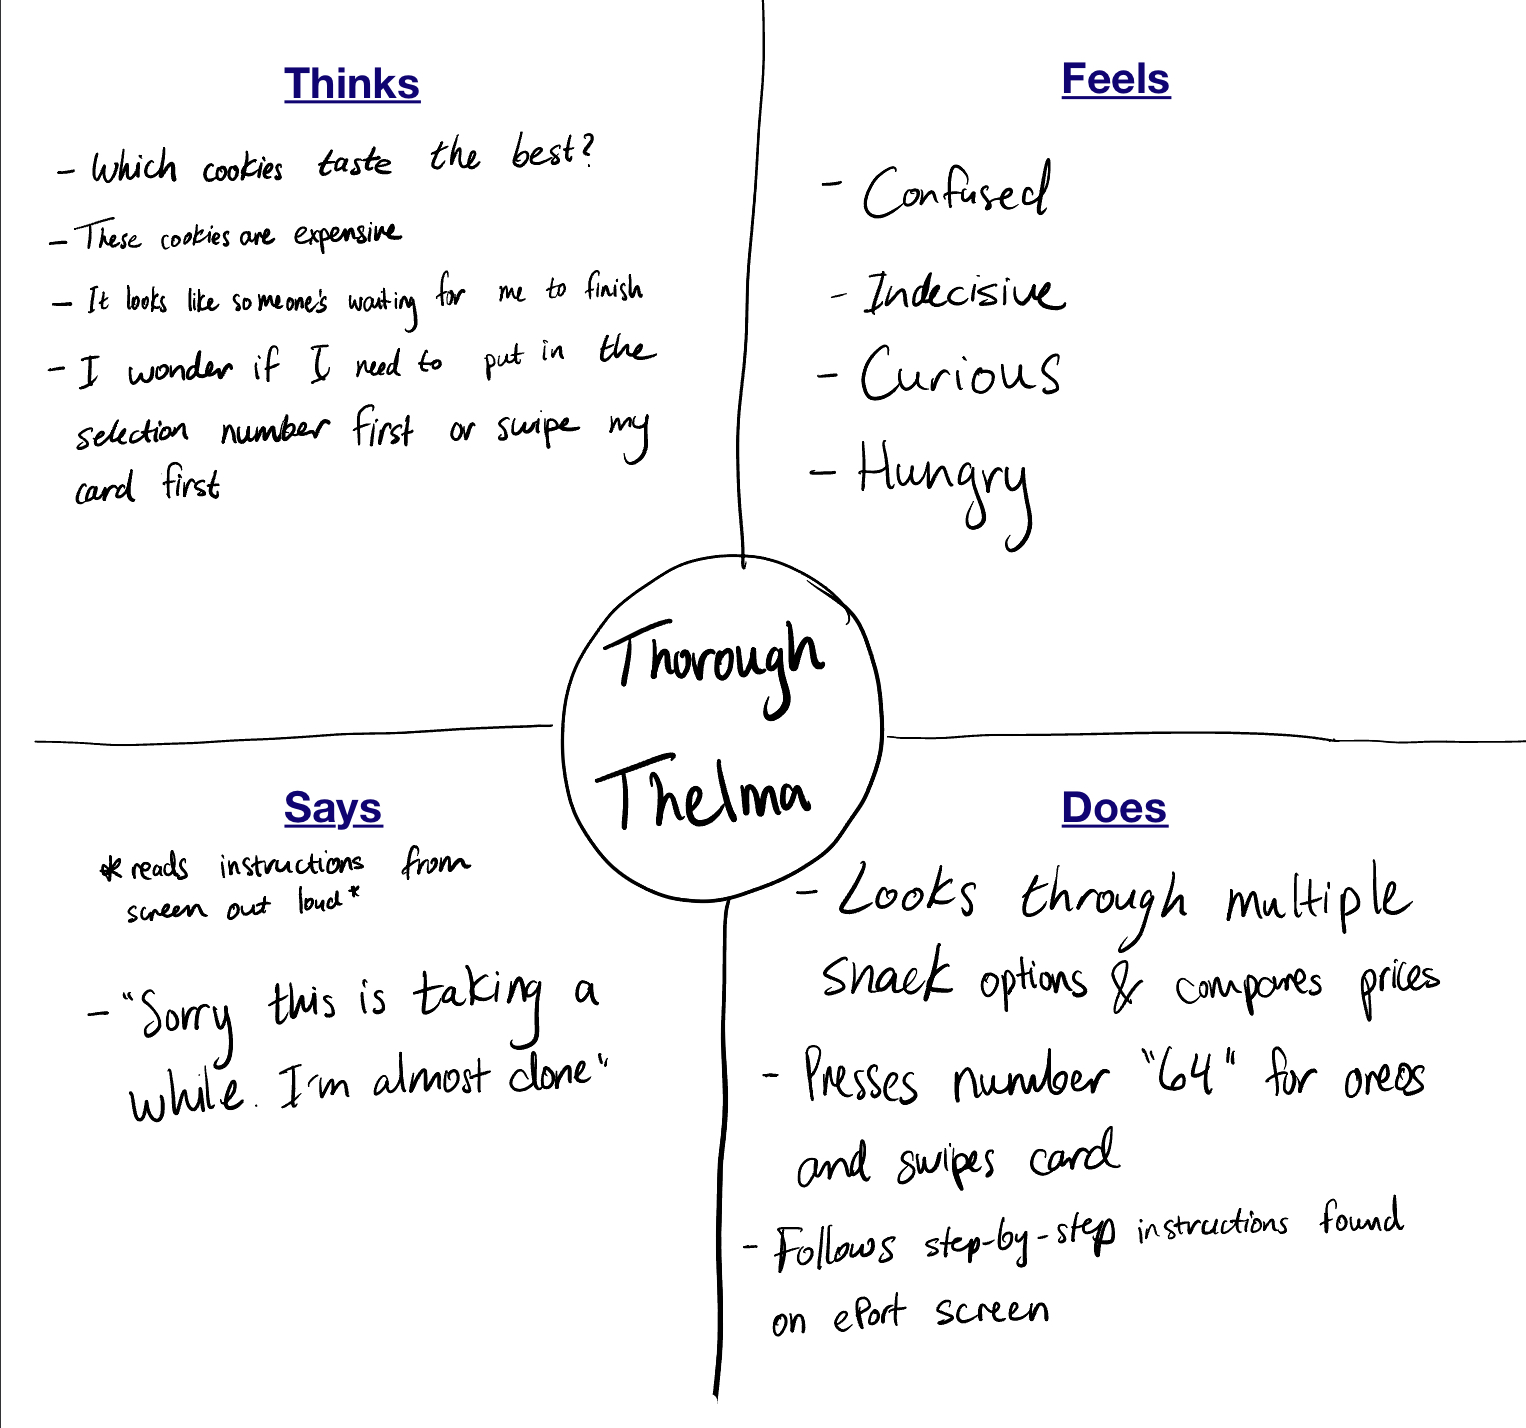 Thinks
- Which cookies taste the best?
- These cookies are expensive
- It looks like someone's waiting for me to finish
- I wonder if I need to put in the
selection number first or swipe my
card first
Feels
- Confused
- Indecisive
- Curious
- Hungry
Thorough
Thelma
Says
*reads instructions from
screen out loud*
- "Sorry this is taking a
while. I'm almost done"
Does
- Looks through multiple
snack options & compares prices
- Presses number "64" for oreos
and swipes card
- Follows step-by-step instructions found
on ePort screen